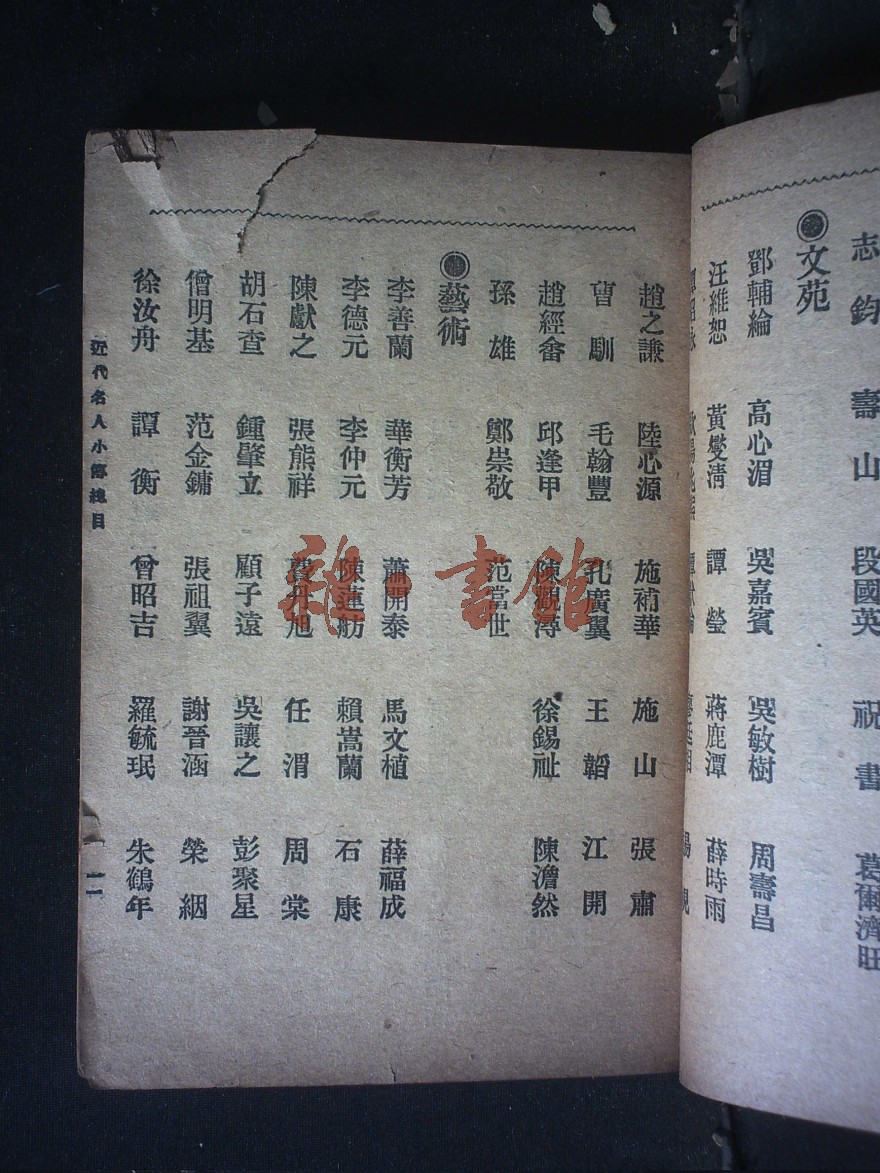 志鈞　壽山　段國英　祝書　葛爾濟旺
文苑
鄧輔綸　高心湄　吳嘉賓　吳敏樹　周壽昌
汪維恕　黃燮淸　譚瑩　蔣鹿潭　薛時雨
趙之謙　陸心源　施補華　施山　張肅
曹馴　毛翰豐　孔廣翼　王韜　江開
趙經畬　邱逢甲　陳觀濤　徐錫祉　陳澹然
孫雄　鄭崇敬　范當世
藝術
李善蘭　華衡芳　蕭開泰　馬文植　薛福成
李德元　李仲元　陳蓮舫　賴嵩蘭　石康
陳獻之　張熊祥　旭　任渭　周棠
胡石查　鍾肇立　顧子遠　吳讓之　彭聚星
僧明基　范金鏞　張祖翼　謝晉涵　榮絪
徐汝舟　譚衡　曾昭吉　羅毓珉　朱鶴年
近代名人小傳總目
一一
雜·書館